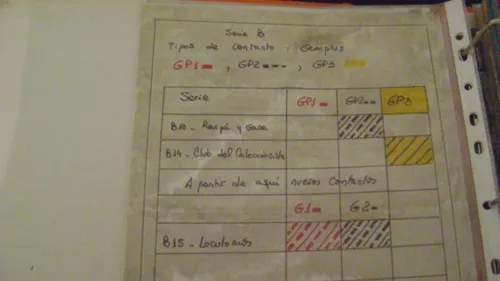 Serie B
Tipos de contacto: Gemplus
GP1, GP2, GP3
Serie GP1 GP2 GP3
B13 - y Gase
B14 - Club del Coleccionista
A partir de aquí nuevos contactos
G1 G2
B15 - Locutorios